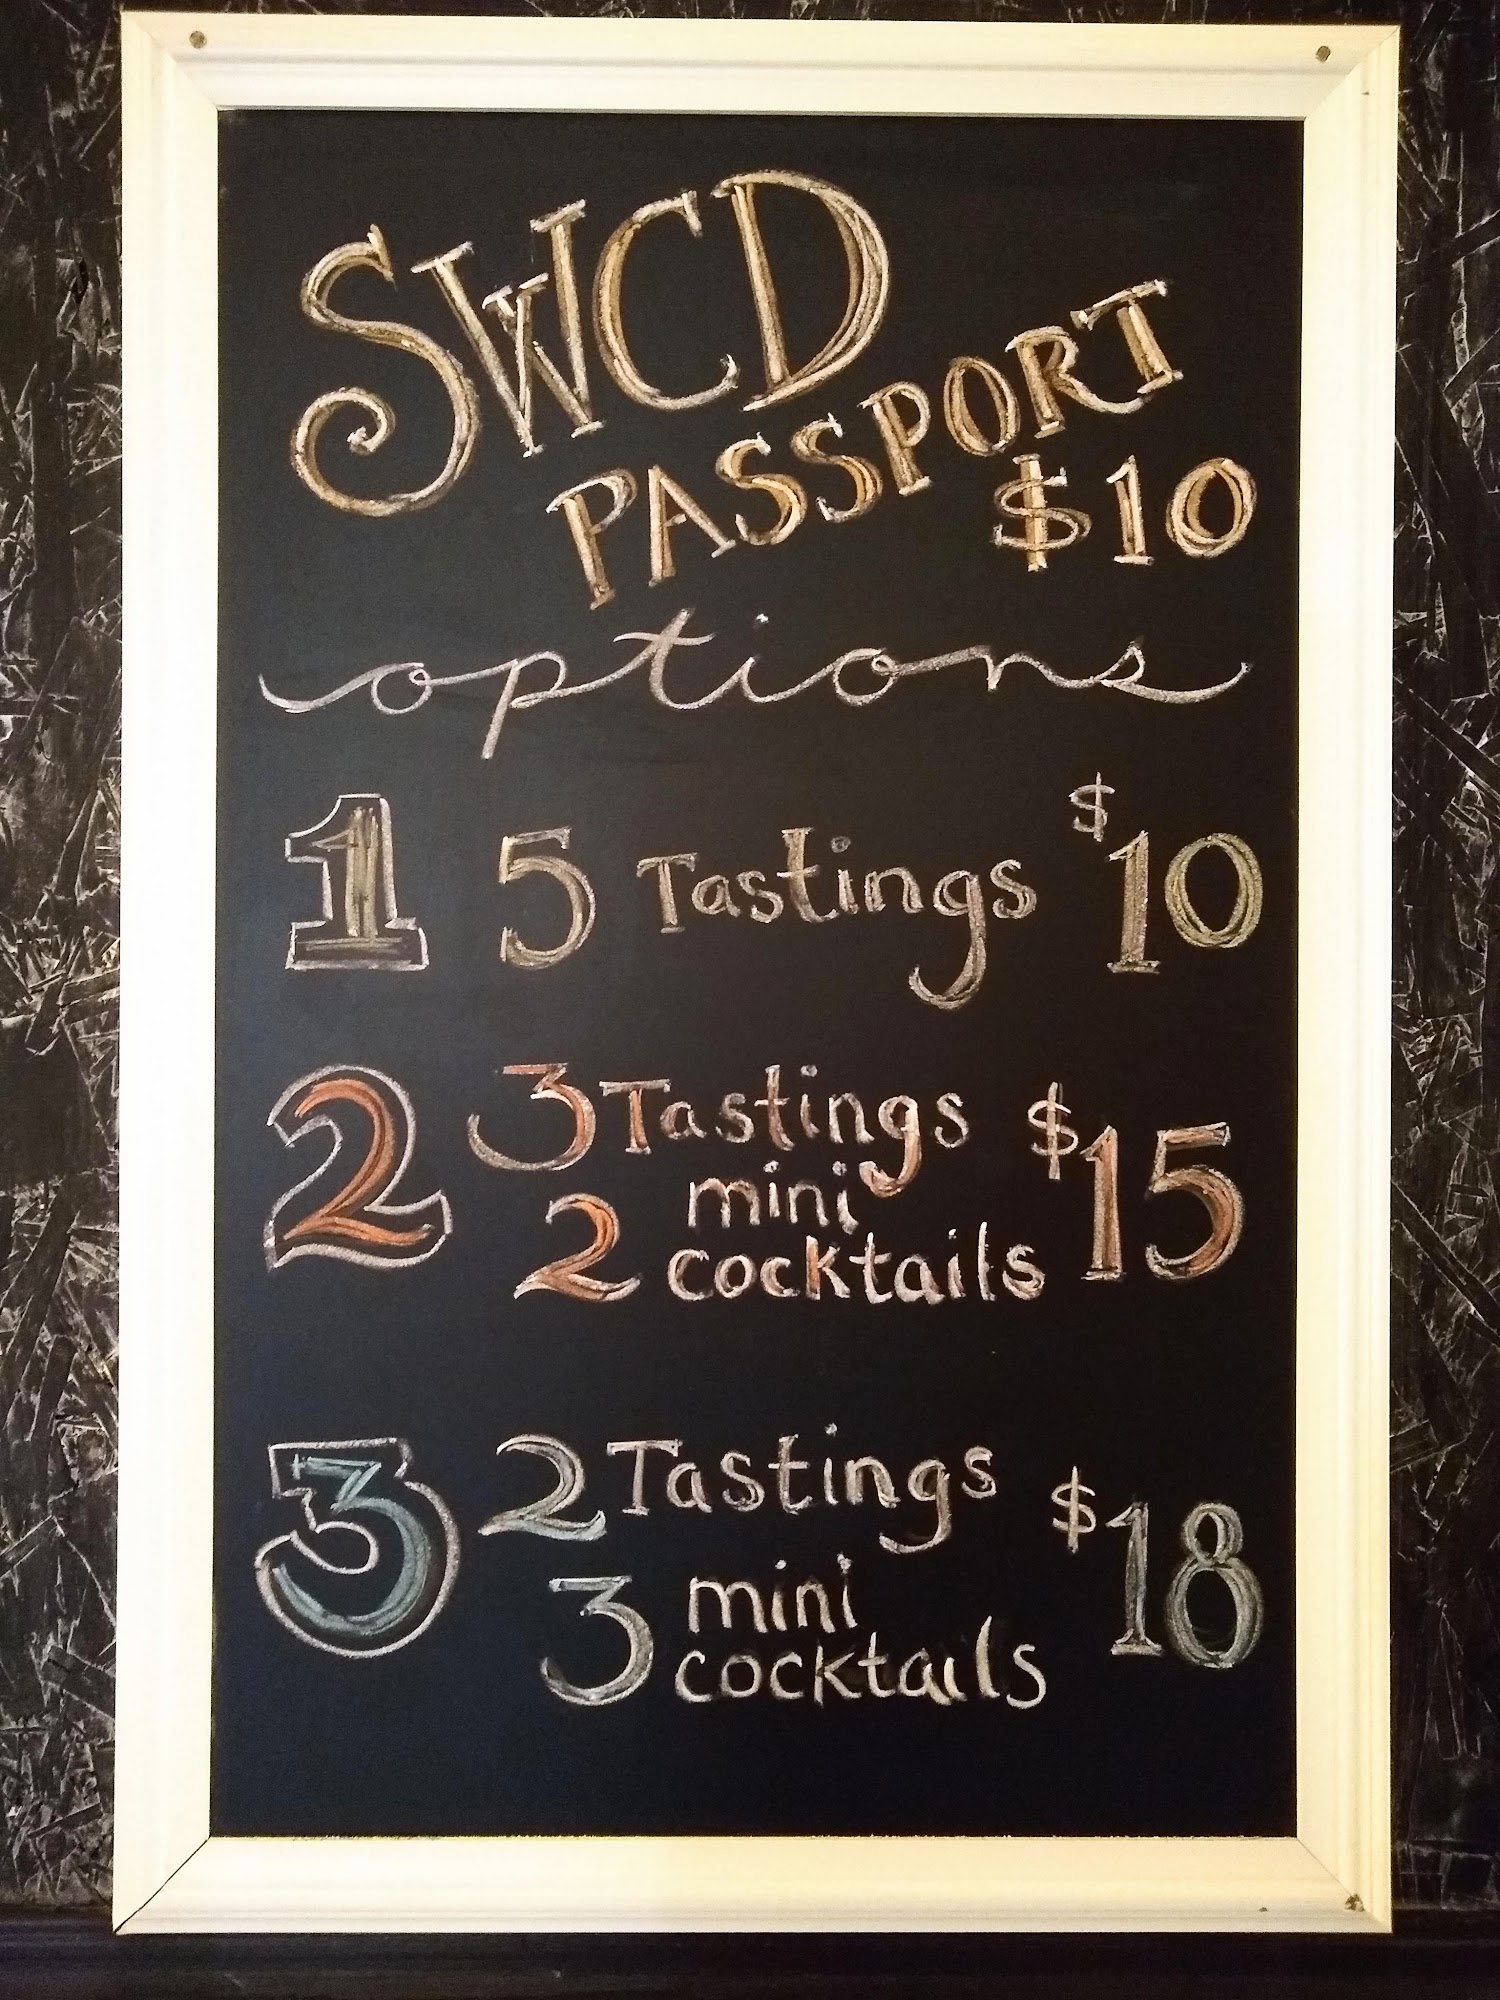 SWCD
PASSPORT
$10
options
1 5 Tastings $10
2 3 Tastings $15
2 mini
cocktails
3 2 Tastings $18
3 mini
cocktails